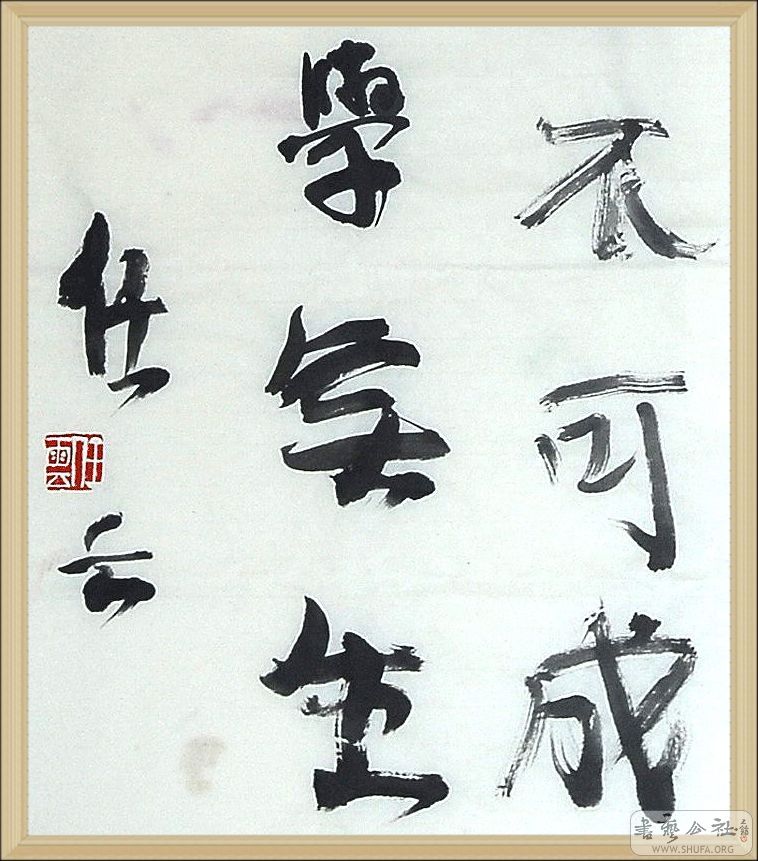 不可成
學生
任云
任雲
書藝公社
WWW.SHUFA.ORG